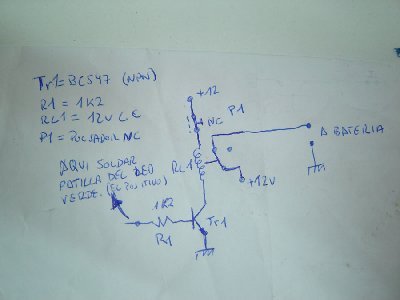 Tr1=BC547 (NPN)
R1 = 1K2
RL1 = 12V C€
P1 = PULSADOR NC
AQUI SOLDAR
PATILLA DEL LED
VERDE. (EL POSITIVO)
+12
NC
P1
A BATERIA
RL1
+12V
1K2
R1
Tr1